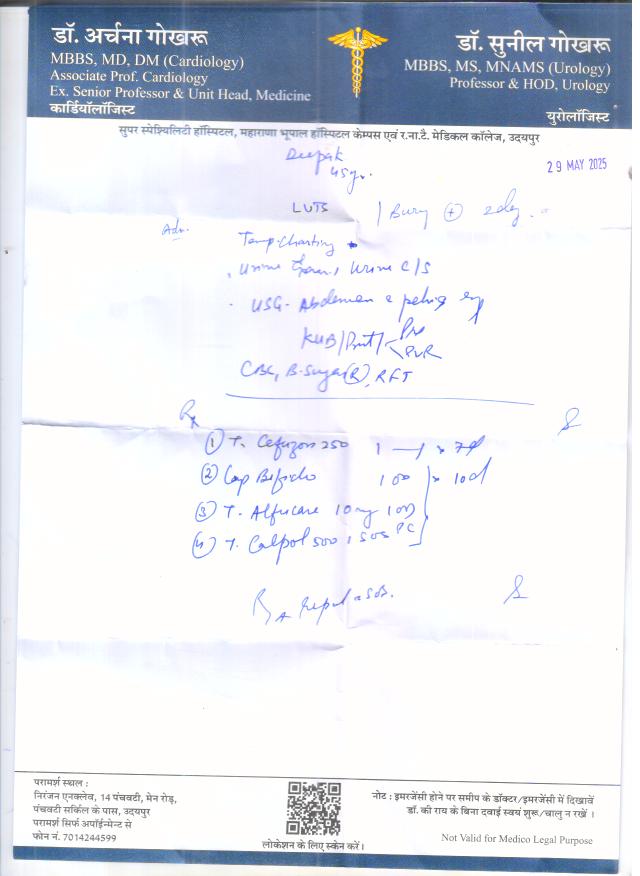 डॉ. अर्चना गोखरू
MBBS, MD, DM (Cardiology)
Associate Prof. Cardiology
Ex. Senior Professor & Unit Head, Medicine
कार्डियॉलॉजिस्ट
डॉ. सुनील गोखरू
MBBS, MS, MNAMS (Urology)
Professor & HOD, Urology
युरोलॉजिस्ट
सुपर स्पेश्यिलिटी हॉस्पिटल, महाराणा भूपाल हॉस्पिटल केम्पस एवं र.ना.टै. मेडिकल कॉलेज, उदयपुर
Deepak
29 MAY 2025
LUTS
Adv.
Temp. Charting
Urine C/S
USG - Abdomen
KUB/Prost/ Pre
PVR
CBC, B. Sugar (R), RFT
Rx
① T. 250 1 — 1 x 7d
② Cap 1 OD x 10d
③ T. 10mg 1 OD
④ T. Calpol 500 1 SOS PC
परामर्श स्थल :
निरंजन एनक्लेव, 14 पंचवटी, मेन रोड़,
पंचवटी सर्किल के पास, उदयपुर
परामर्श सिर्फ अपॉईन्मेन्ट से
फोन नं. 7014244599
लोकेशन के लिए स्केन करें।
नोट : इमरजेंसी होने पर समीप के डॉक्टर/इमरजेंसी में दिखावें
डॉ. की राय के बिना दवाई स्वयं शुरू/चालु न रखें ।
Not Valid for Medico Legal Purpose